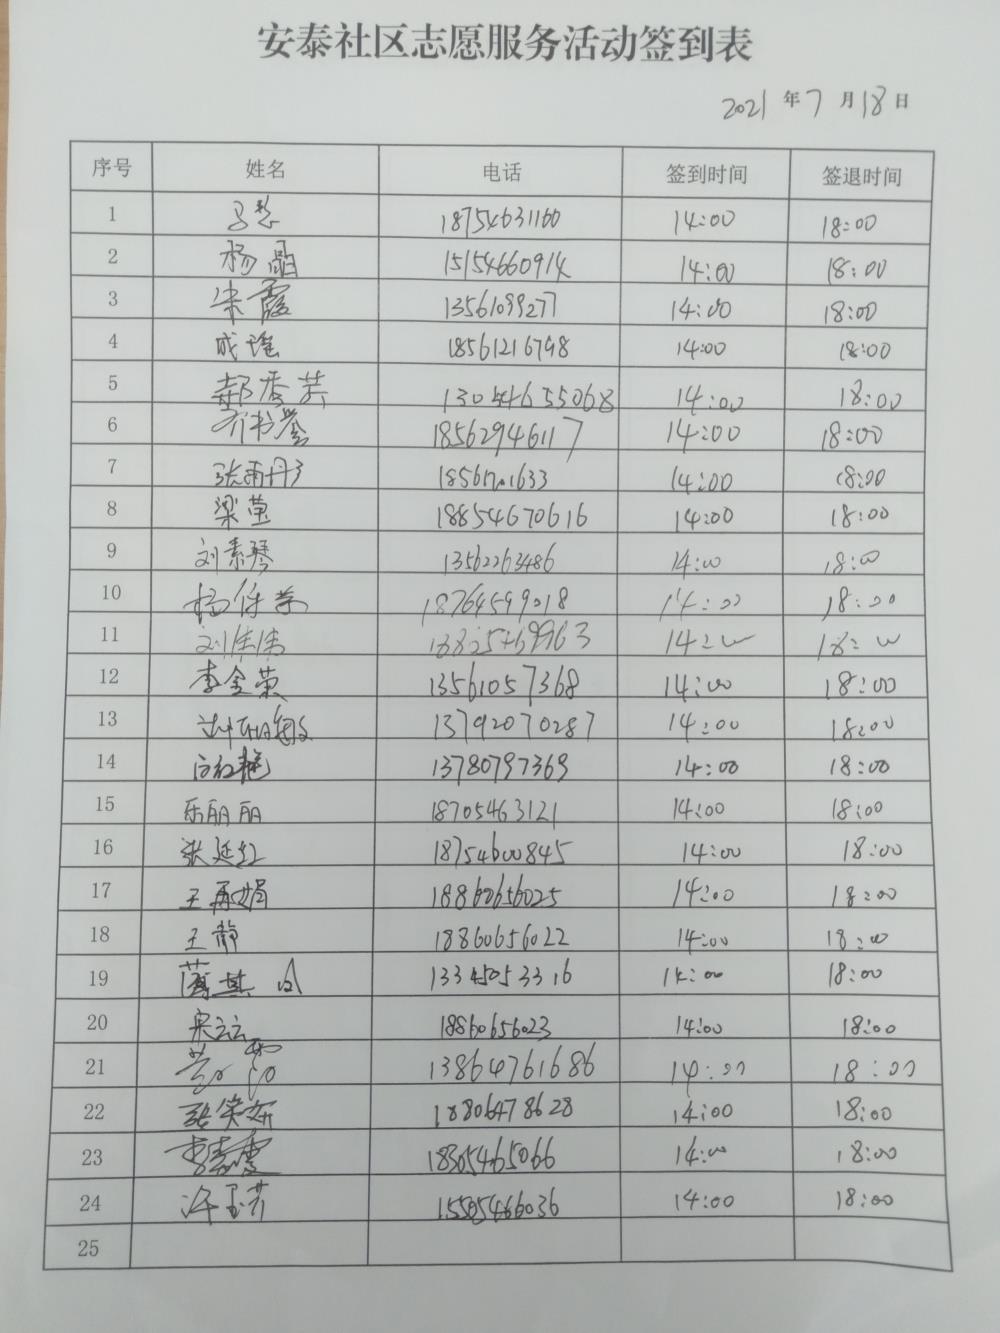 安泰社区志愿服务活动签到表
2021年7月18日
序号 姓名 电话 签到时间 签退时间
1 18754631160 14:00 18:00
2 杨晶 15154660914 14:00 18:00
3 朱霞 13561099277 14:00 18:00
4 成瑶 18561216798 14:00 18:00
5 郝秀芸 13054655068 14:00 18:00
6 18562946117 14:00 18:00
7 张雨丹 14:00 18:00
8 梁萤 18854670616 14:00 18:00
9 刘素琴 13562263486 14:00 18:00
10 18764599018 14:00 18:00
11 刘伟伟 14:00 18:00
12 李金荣 13561057368 14:00 18:00
13 13792070287 14:00 18:00
14 13780797369 14:00 18:00
15 乐丽丽 18705463121 14:00 18:00
16 张延红 18754600845 14:00 18:00
17 王再娟 18860656025 14:00 18:00
18 王静 18860656022 14:00 18:00
19 13345053316 14:00 18:00
20 宋云云 18860656023 14:00 18:00
21 13864761686 14:00 18:00
22 18806478628 14:00 18:00
23 18305465066 14:00 18:00
24 许玉芹 15505466036 14:00 18:00
25